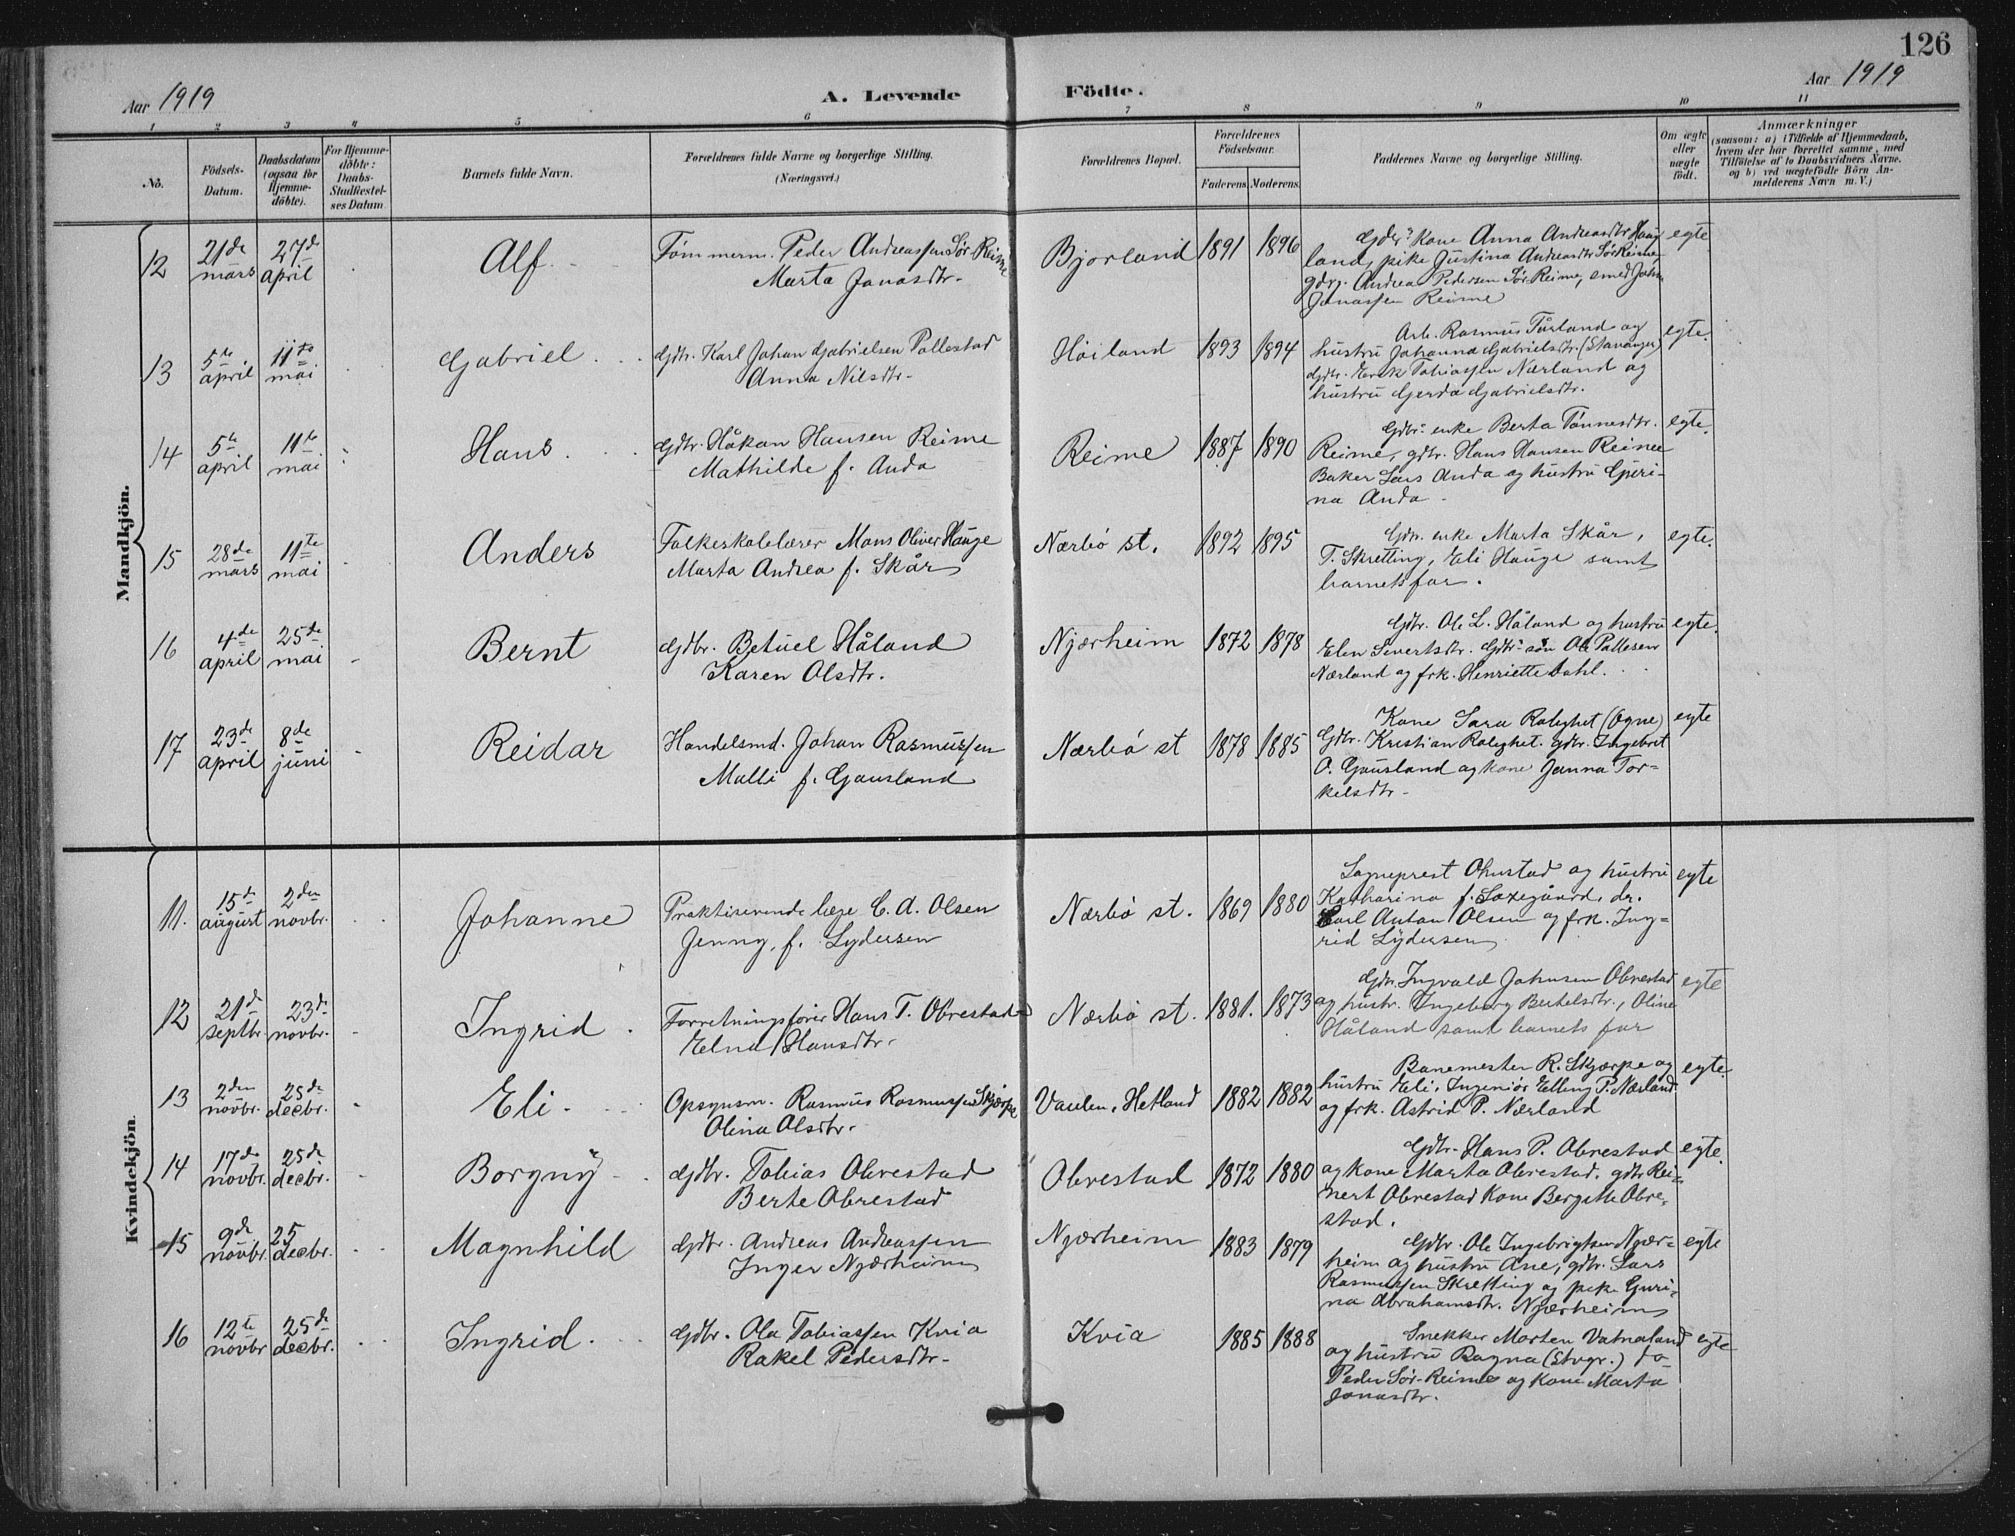 126
Aar 1919
A. Levende Födte.
Aar 1919
1 2 3 4 5 6 7 8 9 10 11
No.
Födsels-
Datum.
Daabsdatum
(ogsaa for
Hjemme-
döbte).
For Hjemme-
döbte:
Daabs-
Stadfæstel-
ses Datum
Barnets fulde Navn.
Forældrenes fulde Navne og borgerlige Stilling.
(Næringsvei.)
Forældrenes Bopæl.
Forældrenes
Födselsaar.
Faderens Moderens
Faddernes Navne og borgerlige Stilling.
Om ægte
eller
uægte
födt.
Anmærkninger
(saasom: a) i Tilfælde af Hjemmedaab,
hvem der har forrettet samme, med
Tilföielse af to Daabsvidners Navne.
og b) ved uægtefödte Börn An-
melderens Navn m. V.)
Mandkjön.
12 21de mars 27de april Alf. Tømmerm. Peder Andreassen Sør-Reime
Marta Jonasdtr.
Bjorland 1891 1896
Gdbrs kone Anna Andreasdtr Haug
land, pike Justina Andreasdtr Sør Reime,
gdrg. Andrea Pedersen Sør Reime, smed John
Jonassen Reime
egte
13 5te april 11te mai Gabriel Gdbr. Karl Johan Gabrielsen Pollestad
Anna Nilsdtr.
Høiland 1893 1894
Arb. Rasmus Tårland og
hustru Johanna Gabrielsdtr. (Stavanger)
Gdbr. Erik Tobiassen Nærland og
hustru Gerda Gabrielsdtr.
egte.
14 5te april 11te mai Hans Gdbr. Håkon Hansen Reime
Mathilde f. Anda
Reime 1887 1890
Gdbr. enke Berta Tønnesdtr.
Reime, gdbr. Hans Hansen Reime
Baker Lars Anda og hustru Guri-
na Anda
egte.
15 28de mars 11te mai Anders Folkeskolelærer Mons Oliver Hauge
Marta Andrea f. Skår
Nærbø st. 1892 1895
Gdbr. enke Marta Skår,
T. Skretting, Eli Hauge samt
barnets far.
egte.
16 4de april 25de mai Bernt Gdbr. Betuel Håland
Karen Olsdtr.
Njærheim 1872 1878
Gdbr. Ole L. Håland og hustru
Elen Sivertsdtr. Gdbr. søn Ole Pallesen
Nærland og frk. Henriette Dahl.
egte.
17 23de april 8de juni Reidar Handelsmd. Johan Rasmussen
Malli f. Gausland
Nærbø st 1878 1885
Kone Sara Rolighet (Ogne)
Gdbr. Kristian Rolighet. Gdbr. Ingebret
O. Gausland og kone Janna Tor-
kelsdtr.
egte
Kvindekjön.
11. 15de august 2den novbr. Johanne Praktiserende læge C. A. Olsen
Jenny, f. Lydersen
Nærbø st. 1869 1880
Sogneprest Ohnstad og hustru
Katharina f. Saxegaard, dr.
Carl Anton Olsen og frk. Ing-
rid Lydersen
egte
12 21de septbr. 23de novbr. Ingrid Forretningsfører Hans T. Obrestad
Elna Hansdtr.
Nærbø st. 1881. 1873
Gdbr. Ingvald Johnsen Obrestad
og hustr. Ingeborg Bertelsdtr., Oline
Håland samt barnets far
egte
13 2den novbr. 25de decbr. Eli Opsynsm. Rasmus Rasmussen Skjærpe
Olina Olsdtr.
Vaulen, Hetland 1882 1882
Banemester R. Skjærpe og
hustru Eli, Ingeniør Elling P. Nærland
og frk. Astrid P. Nærland
egte.
14 17de novbr. 25de decbr. Borgny Gdbr. Tobias Obrestad
Berte Obrestad
Obrestad 1872 1880
Gdbr. Hans P. Obrestad
og kone Marta Obrestad. gdbr. Rei-
nert Obrestad Kone Bergitte Obre-
stad.
egte.
15 9de novbr. 25 decbr. Magnhild Gdbr. Andreas Andreassen
Inger Njærheim
Njærheim 1883 1879
Gdbr. Ole Ingebrigtsen Njær-
heim og hustru Ane, gdbr. Lars
Rasmussen Skretting og pike Guri-
na Abrahamsdtr. Njærheim
egte
16 12te novbr 25de decbr. Ingrid Gdbr. Ola Tobiassen Kvia
Rakel Pedersdtr.
Kvia 1885 1888
Snekker Morten Vatnaland
og hustru Ragna (Stvgr.)
Peder Sør-Reime og kone Marta
Jonasdtr.
egte